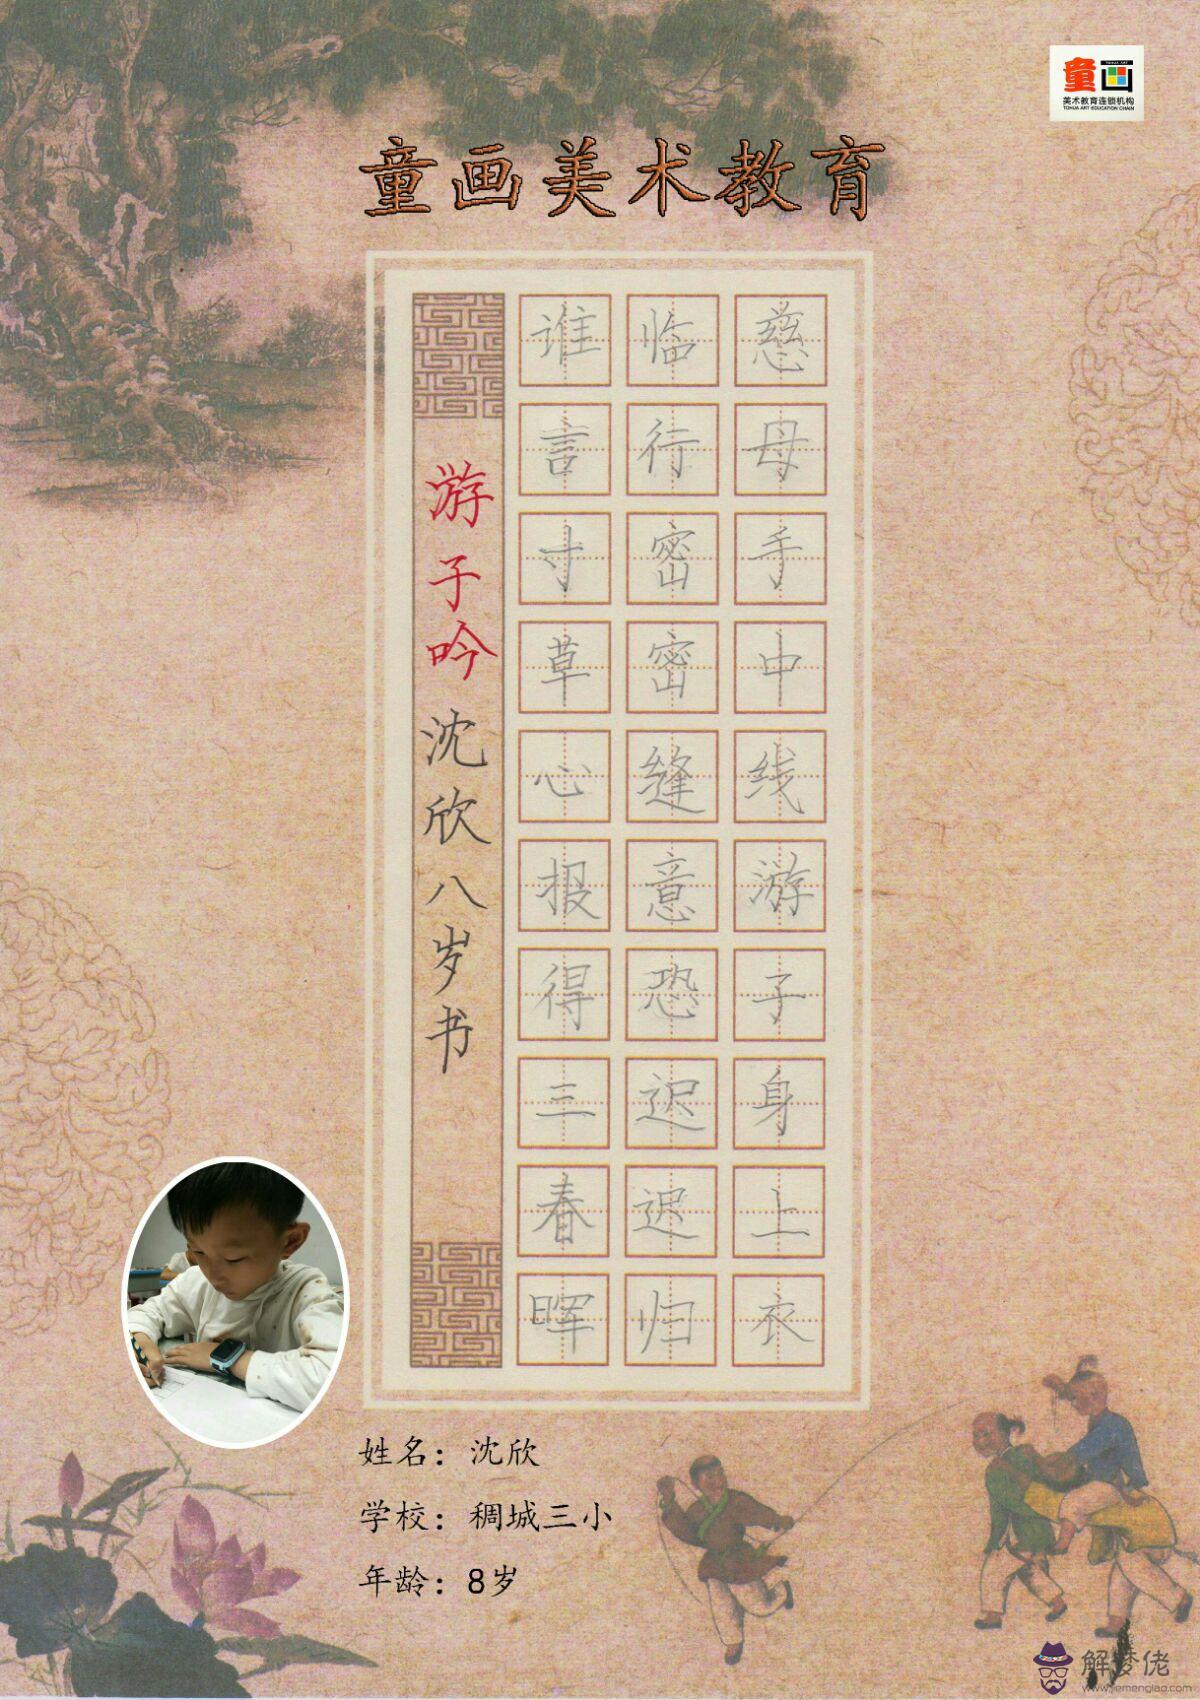 童画
TOHUA ART
美术教育连锁机构
TOHUA ART EDUCATION CHAIN
童画美术教育
慈母手中线游子身上衣
临行密密缝意恐迟迟归
谁言寸草心报得三春晖
游子吟 沈欣八岁书
姓名：沈欣
学校：稠城三小
年龄：8岁
解梦佬
www.jiemenglao.com